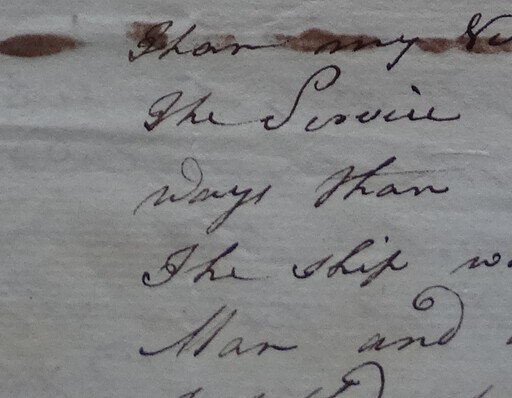 Than my
The Service
ways than
The ship
Man and